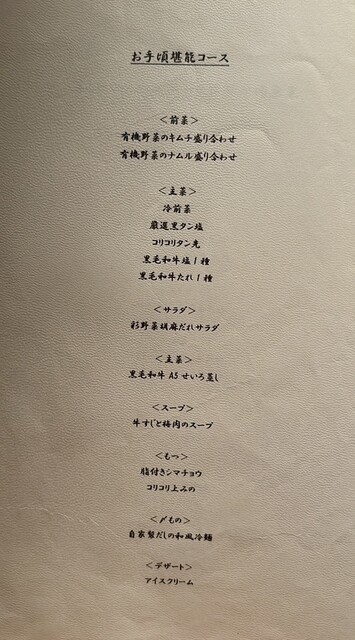 お手頃堪能コース
＜前菜＞
有機野菜のキムチ盛り合わせ
有機野菜のナムル盛り合わせ
＜主菜＞
冷前菜
厳選黒タン塩
コリコリタン先
黒毛和牛塩1種
黒毛和牛たれ1種
＜サラダ＞
彩野菜胡麻だれサラダ
＜主菜＞
黒毛和牛A5せいろ蒸し
＜スープ＞
牛すじと梅肉のスープ
＜もつ＞
脂付きシマチョウ
コリコリ上みの
＜〆もの＞
自家製だしの和風冷麺
＜デザート＞
アイスクリーム